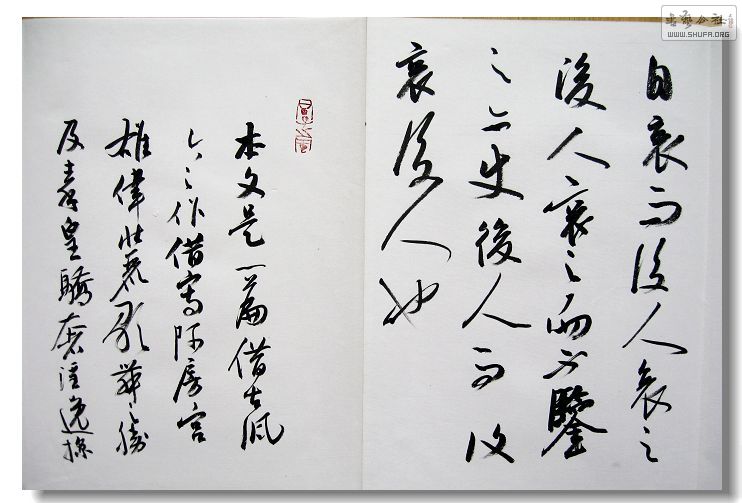 自哀而後人哀之
後人哀之而不鑒
之亦使後人而復
哀後人也
本文是一篇借古諷
今之作借寫阿房宮
雄偉壯麗歌舞之勝
及秦皇驕奢淫逸
書藝公社
WWW.SHUFA.ORG